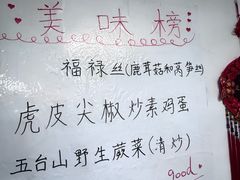 美味榜
福禄丝(鹿茸菇和莴笋丝)
虎皮尖椒炒素鸡蛋
五台山野生蕨菜(清炒)
good